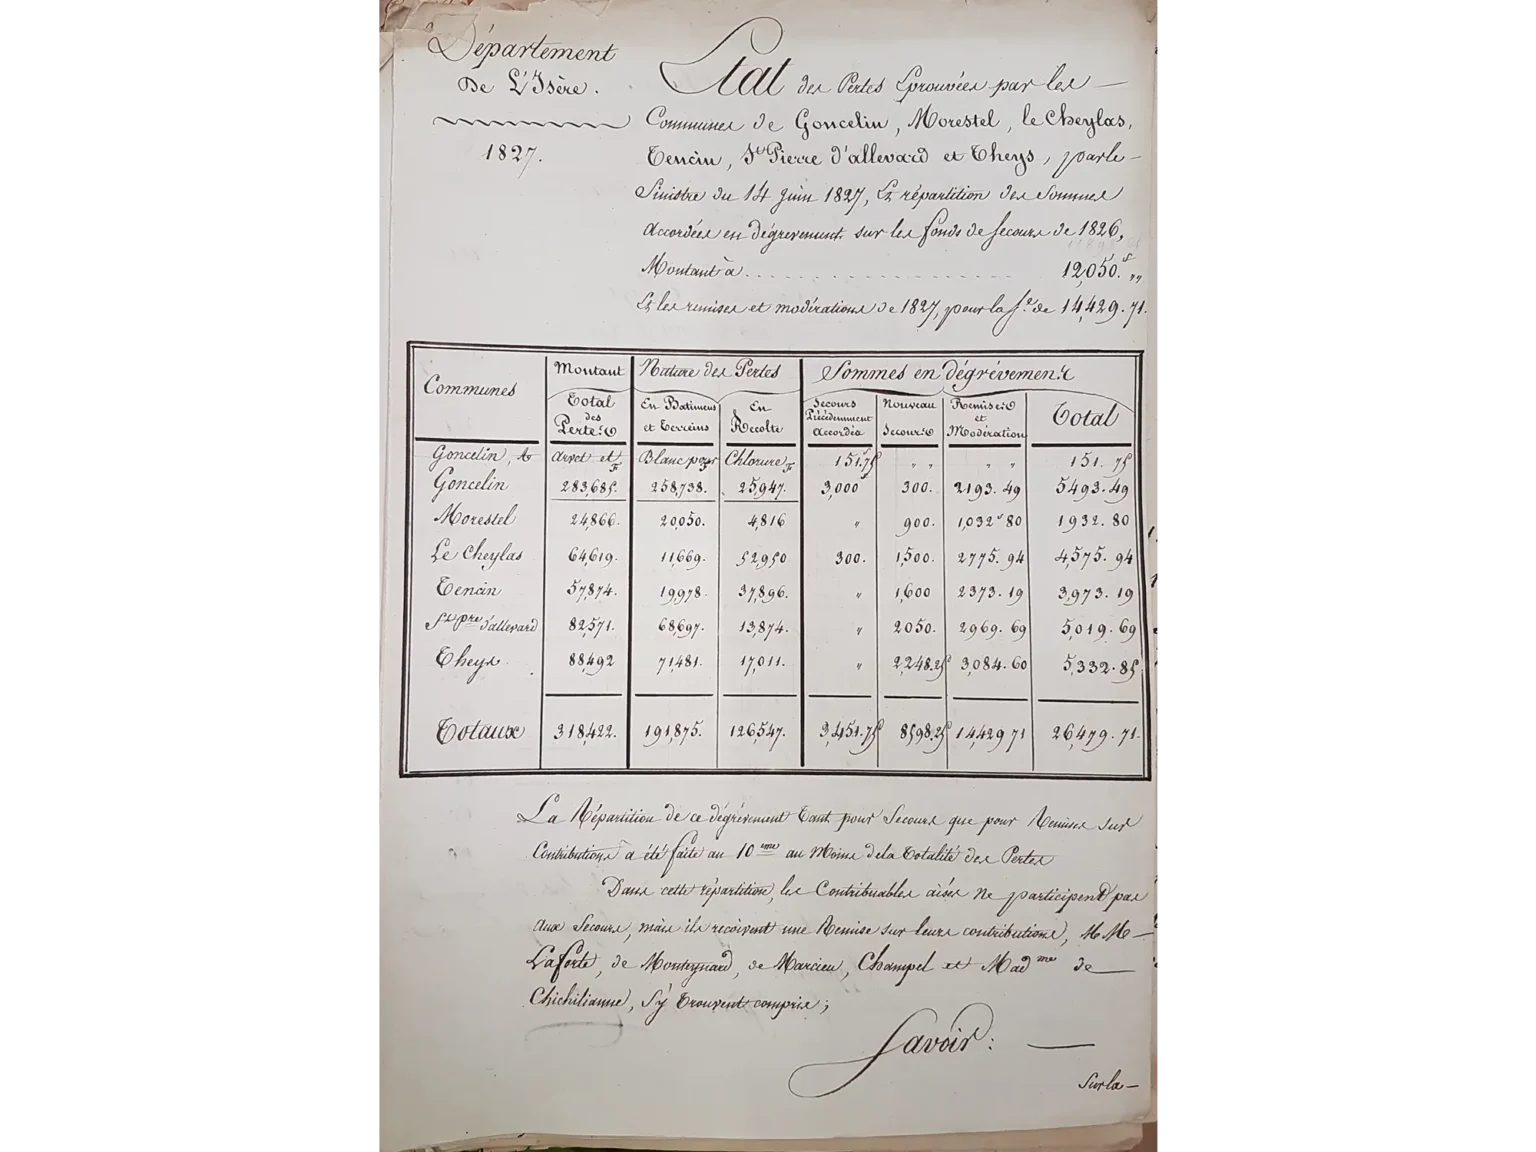 Département
De L'Isère.
1827.
Etat des Pertes Eprouvées par les
Communes de Goncelin, Morestel, le Cheylas,
Tencin, St Pierre d'allevard et Theys, par le
Sinistre du 14 Juin 1827, Et répartition des Sommes
Accordées en dégrevement sur les fonds de secours de 1826,
Montant à . . . . . . . . . . 12,050.f „
Et les remises et modérations de 1827, pour la Se de 14,429.71.
Communes Montant Nature des Pertes Sommes en dégrévement
Total des Pertes En Batimens et Terreins En Recolte Secours Précédemment Accordés Nouveau Secours Remises et Modération Total
Goncelin, A Arvet et Blanc pour Chlorure 151.75 „ „ „ „ 151. 75
Goncelin 283,685. 258,738. 25,947. 3,000 300. 2193. 49 5493. 49
Morestel 24,866. 20,050. 4,816 „ 900. 1,032 80 1932. 80
Le Cheylas 64,619. 11,669. 52,950 300. 1,500. 2775. 94 4,575. 94
Tencin 57,874. 19,978. 37,896. „ 1,600 2373. 19 3,973. 19
St pre d'allevard 82,571. 68,697. 13,874. „ 2050. 2969. 69 5,019. 69
Theys 88,492 71,481. 17,011. „ 2,248.25 3,084. 60 5,332. 85
Totaux 318,422. 191,875. 126,547. 3,451.75 8598.25 14,429 71 26,479. 71.
La Répartition de ce dégrévement Tant pour Secours que pour Remises sur
Contributions à été faite au 10eme au Moins de la Totalité des Pertes
Dans cette répartition, les Contribuables aisés Ne participent pas
aux Secours, mais ils reçoivent une Remise sur leurs contributions, MM
Laforte, de Monteynard, de Marcieu, Champel et Madme de
Chichilianne, s'y Trouvent compris;
Savoir :
Sur la